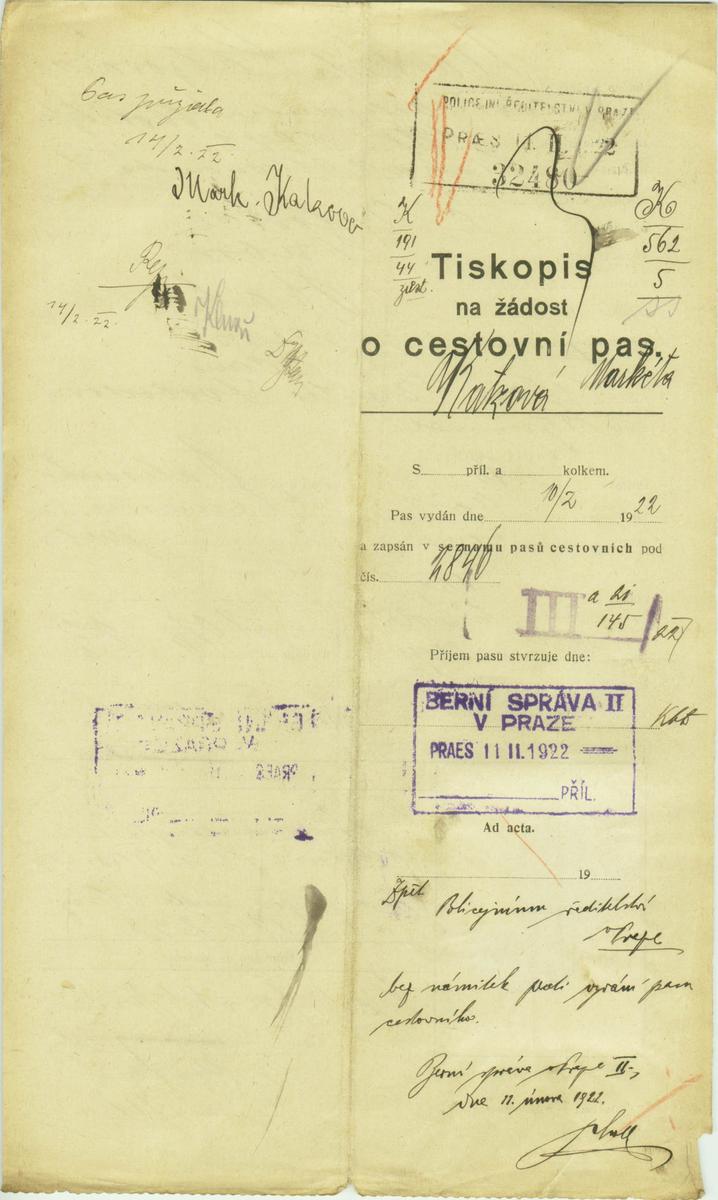 14/2. 22.
Mark. Katzová
14/2. 22.
POLICEJNÍ ŘEDITELSTVÍ V PRAZE
PRAES 11. II. 1922
32480
K
191
44
K
562
5
Tiskopis
na žádost
o cestovní pas.
Katzová Markéta
S příl. a kolkem.
Pas vydán dne 10/2 1922
a zapsán v seznamu pasů cestovních pod
čís. 2846
III a 21
145 /22
Příjem pasu stvrzuje dne:
BERNÍ SPRÁVA II
V PRAZE
PRAES 11 II. 1922
PŘÍL.
Ad acta.
19
Zpět Policejnímu ředitelství
v Praze
bez námitek proti vydání pasu
cestovního.
Berní správa v Praze II.,
dne 11. února 1922.